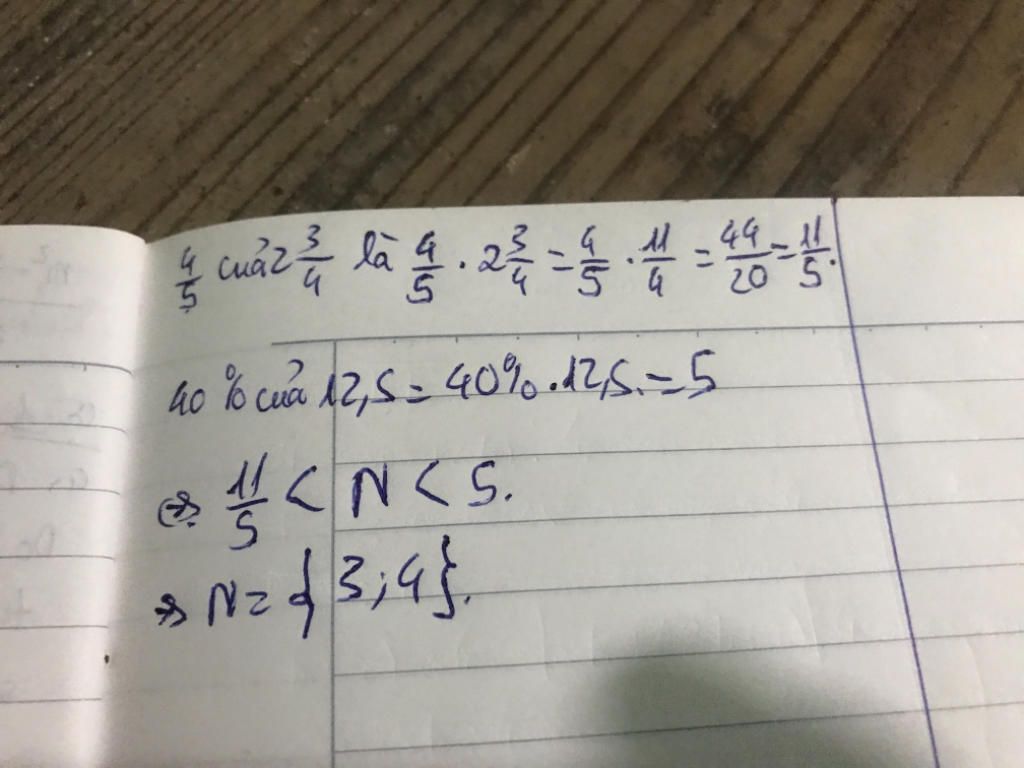 4/5 của 2 3/4 là 4/5 . 2 3/4 = 4/5 . 11/4 = 44/20 = 11/5.
40% của 12,5 = 40% . 12,5. = 5
=> 11/5 < N < 5.
=> N = {3; 4}.